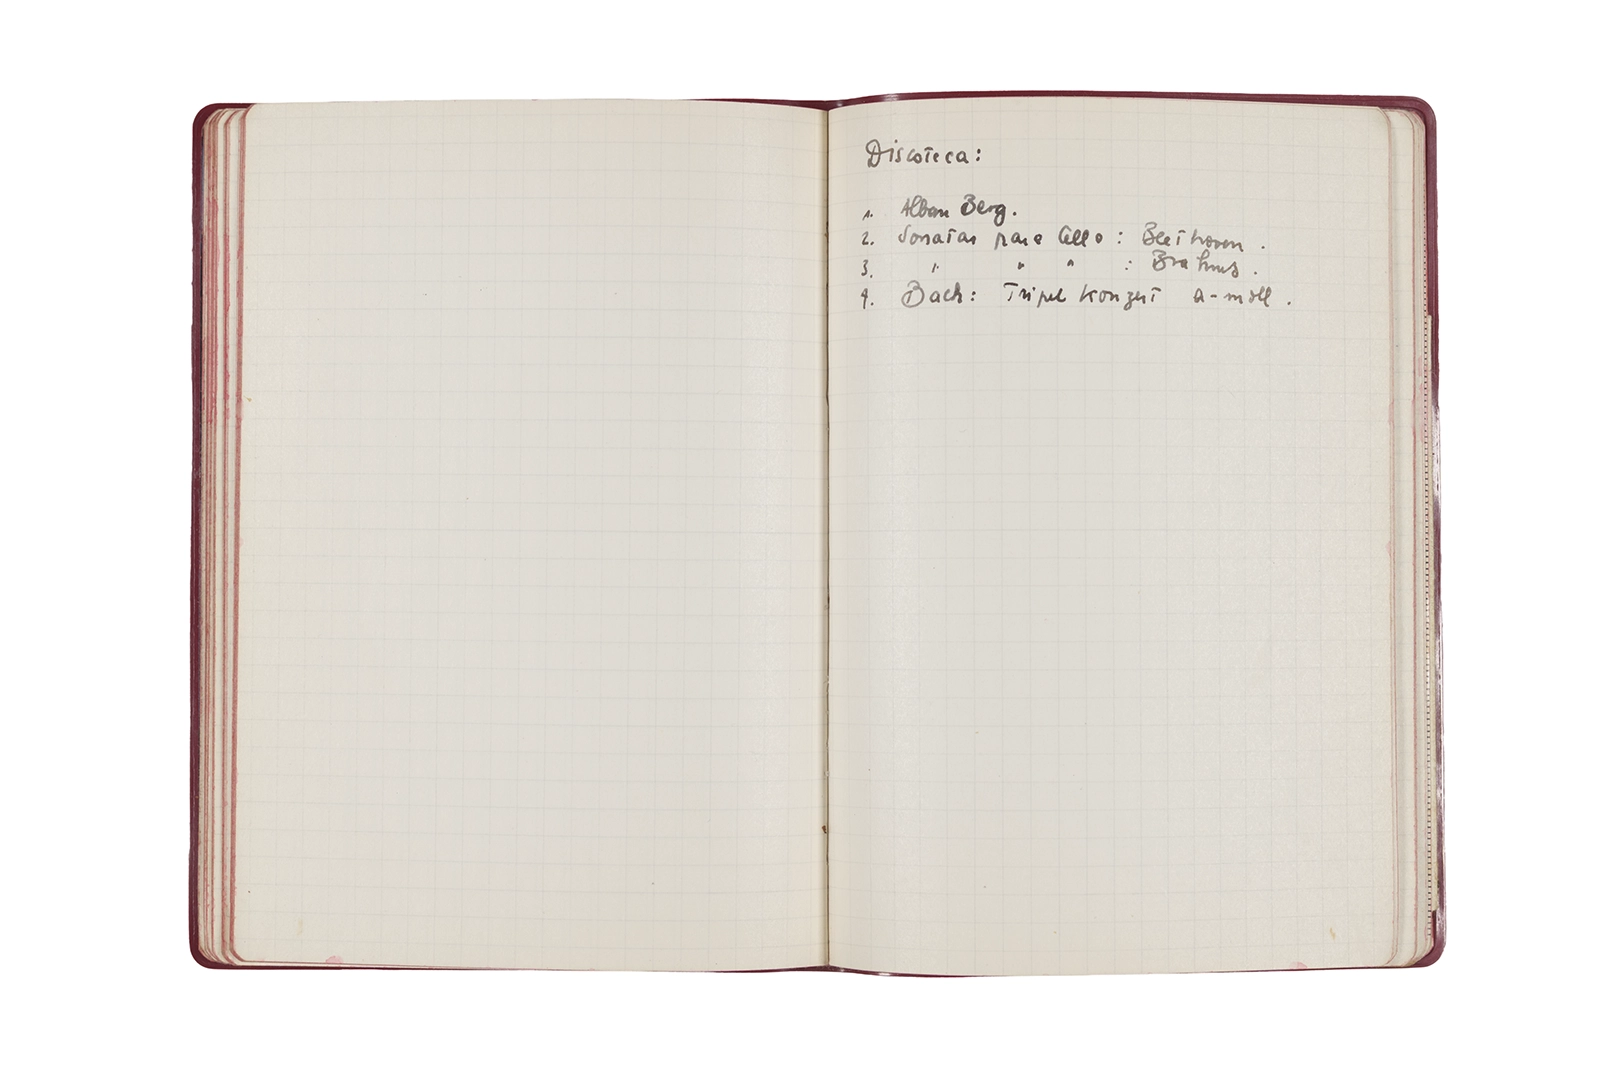 Discoteca:
1. Alban Berg.
2. Sonatas para Cello: Beethoven.
3. " " " : Brahms.
4. Bach: Tripel Konzert a-moll.